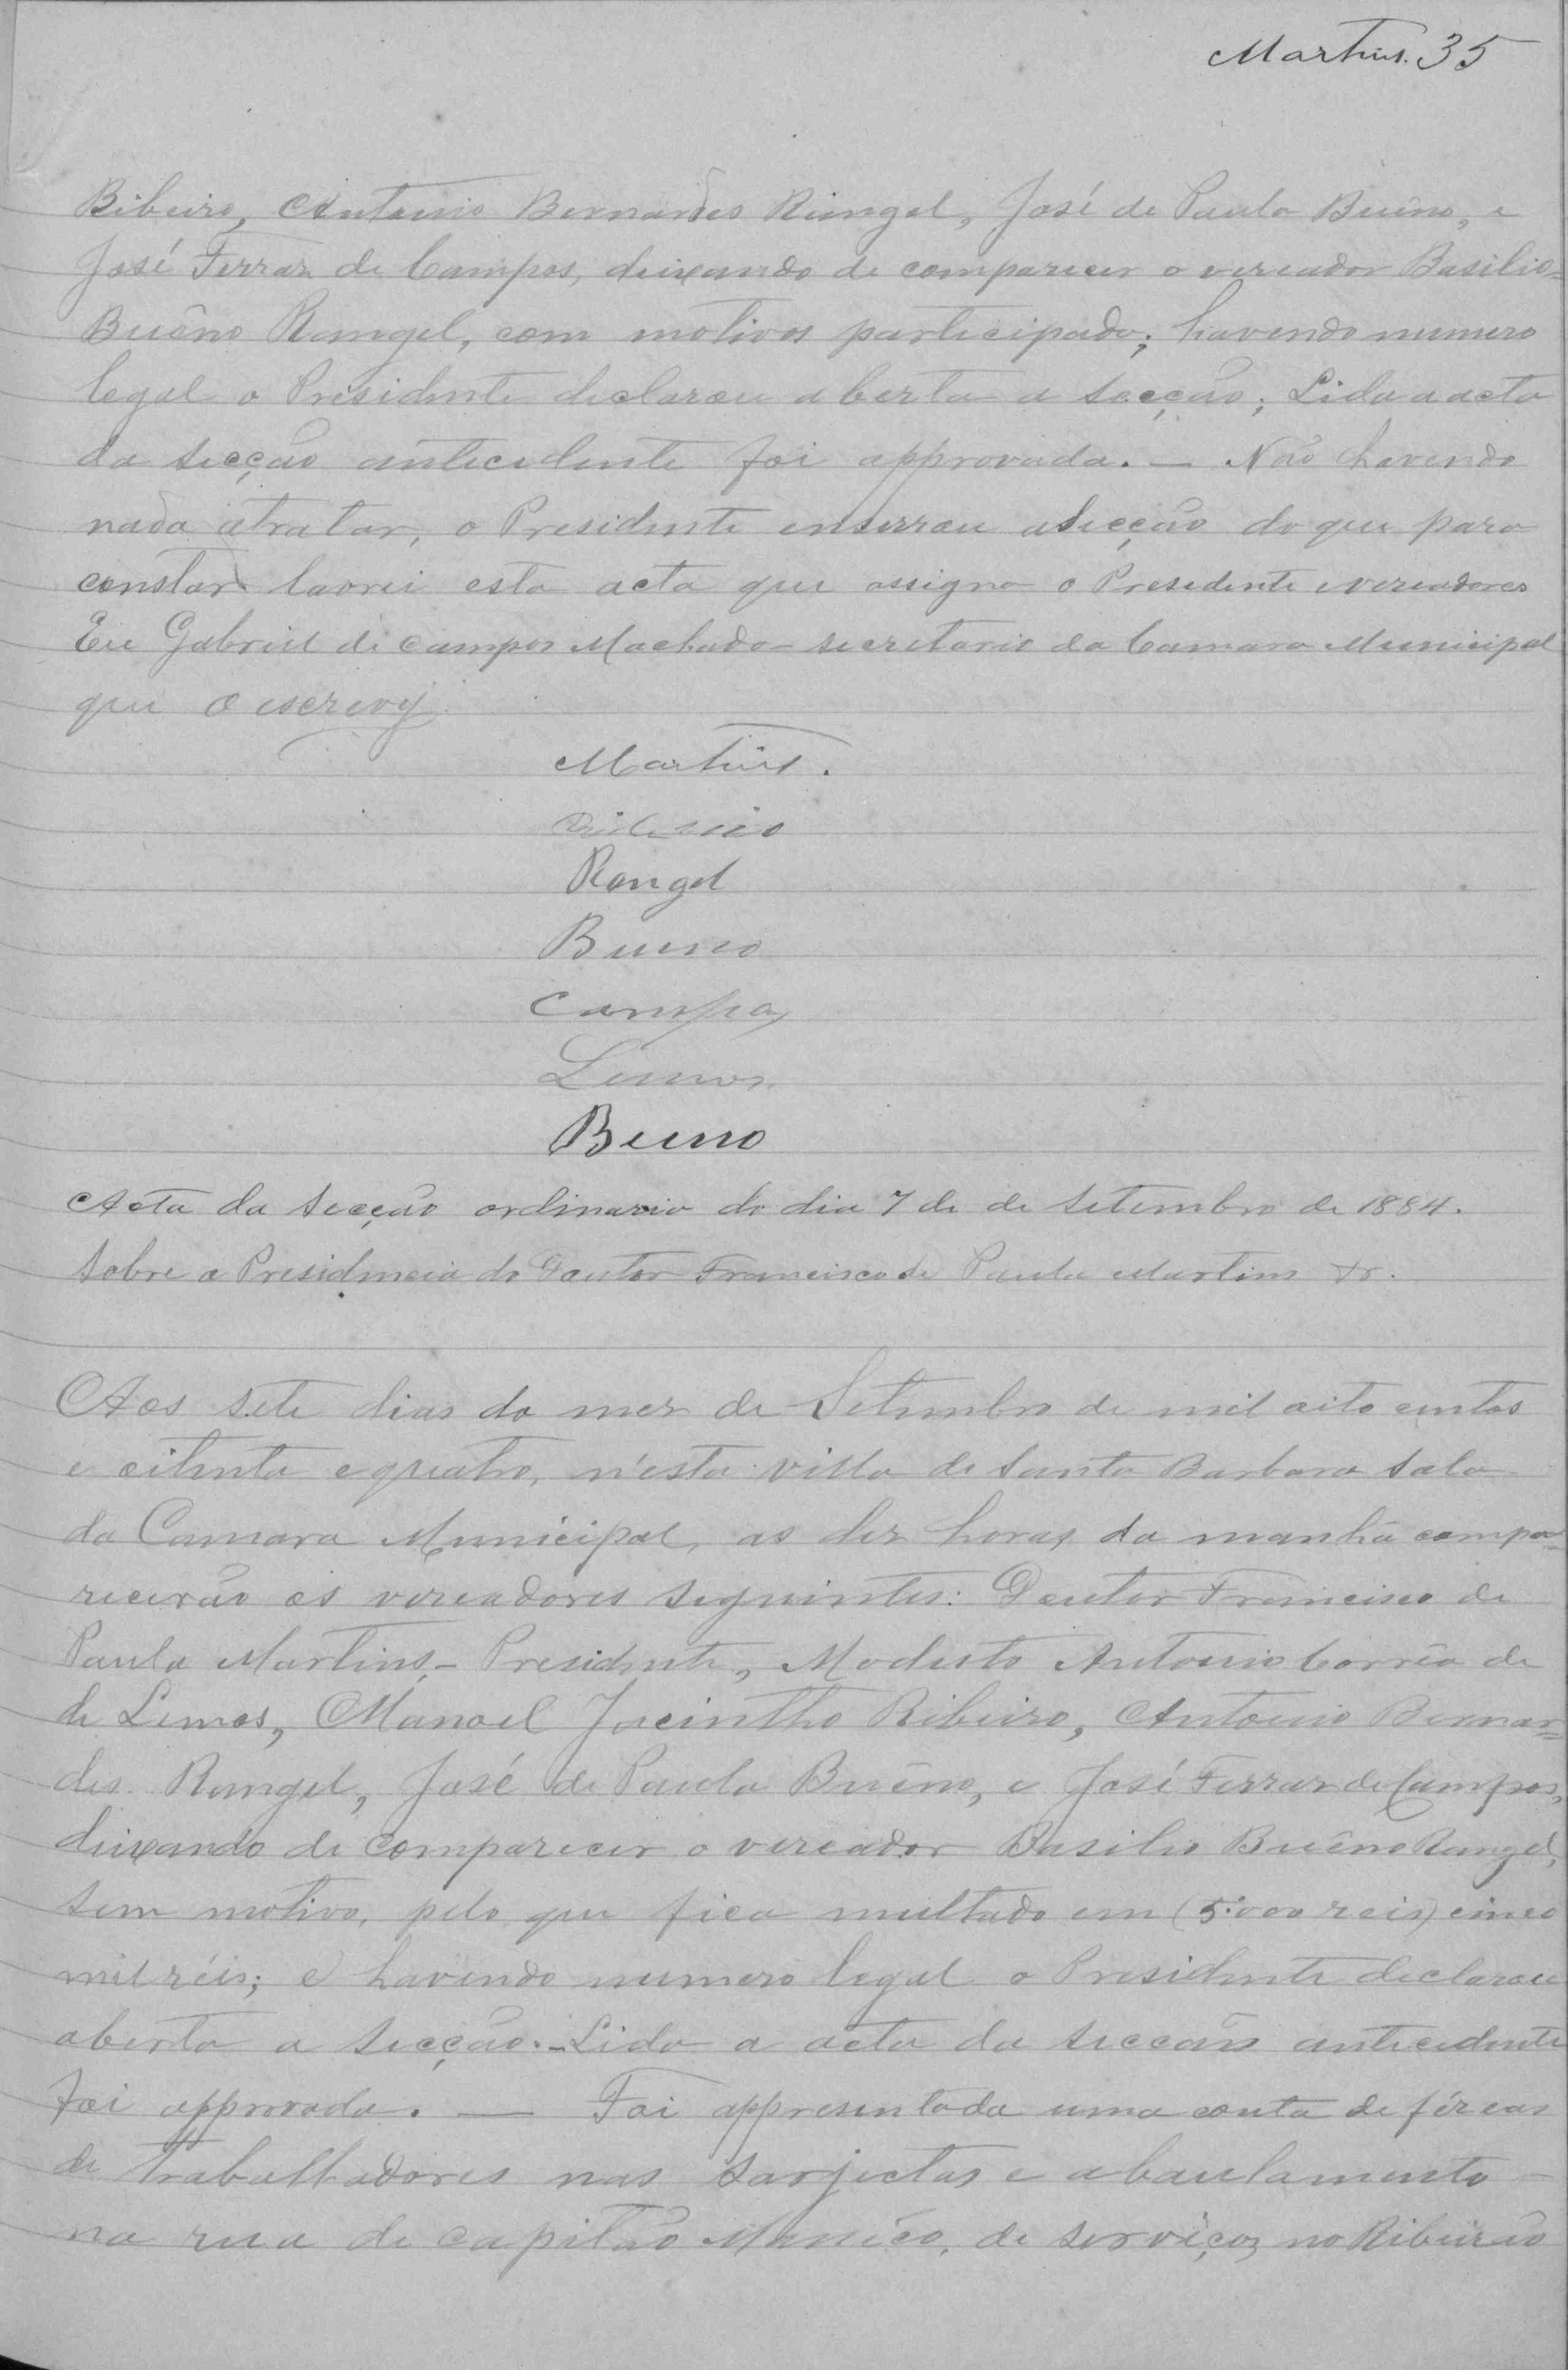 Martins. 35
Ribeiro, Antonio Bernardes Rangel, José de Paula Buêno, e
José Ferraz de Campos, deixando de comparecer o vereador Basilio
Buêno Rangel, com motivos participado; havendo numero
legal o Presidente declarou aberta a secção; Lida a acta
da secção antecedente foi approvada. — Não havendo
nada atratar, o Presidente enserrou a secção do que para
constar lavrei esta acta que assigna o Presidente e vereadores
Eu Gabriel de Campos Machado - secretario da Camara Municipal
que o escrevy
Martins.
Ribeiro
Rangel
Bueno
Campos
Lemos
Bueno
Acta da Secção ordinaria do dia 7 de de Setembro de 1884.
Sobre a Presidencia do Doutor Francisco de Paula Martins
Aos sete dias do mez de Setembro de mil oito centos
e oitenta e quatro, n'esta villa de Santa Barbara sala
da Camara Municipal, as dez horas da manhã compa=
recerão os vereadores seguintes: Doutor Francisco de
Paula Martins, - Presidente, Modesto Antonio Corrêa de
de Lemos, Manoel Jacintho Ribeiro, Antonio Bernar=
des Rangel, José de Paula Buêno, e José Ferraz de Campos,
deixando de comparecer o vereador Basilio Buêno Rangel,
sem motivo, pelo que fica multado em (5:000 reis) cinco
mil réis; e havendo numero legal o Presidente declarou
aberta a secção. - Lida a acta da secção antecedente
foi approvada. — Foi appresentada uma conta de férias
de trabalhadores nas sarjectas e abaulamento
na rua de capitão Manéco, de serviços no Ribeirão